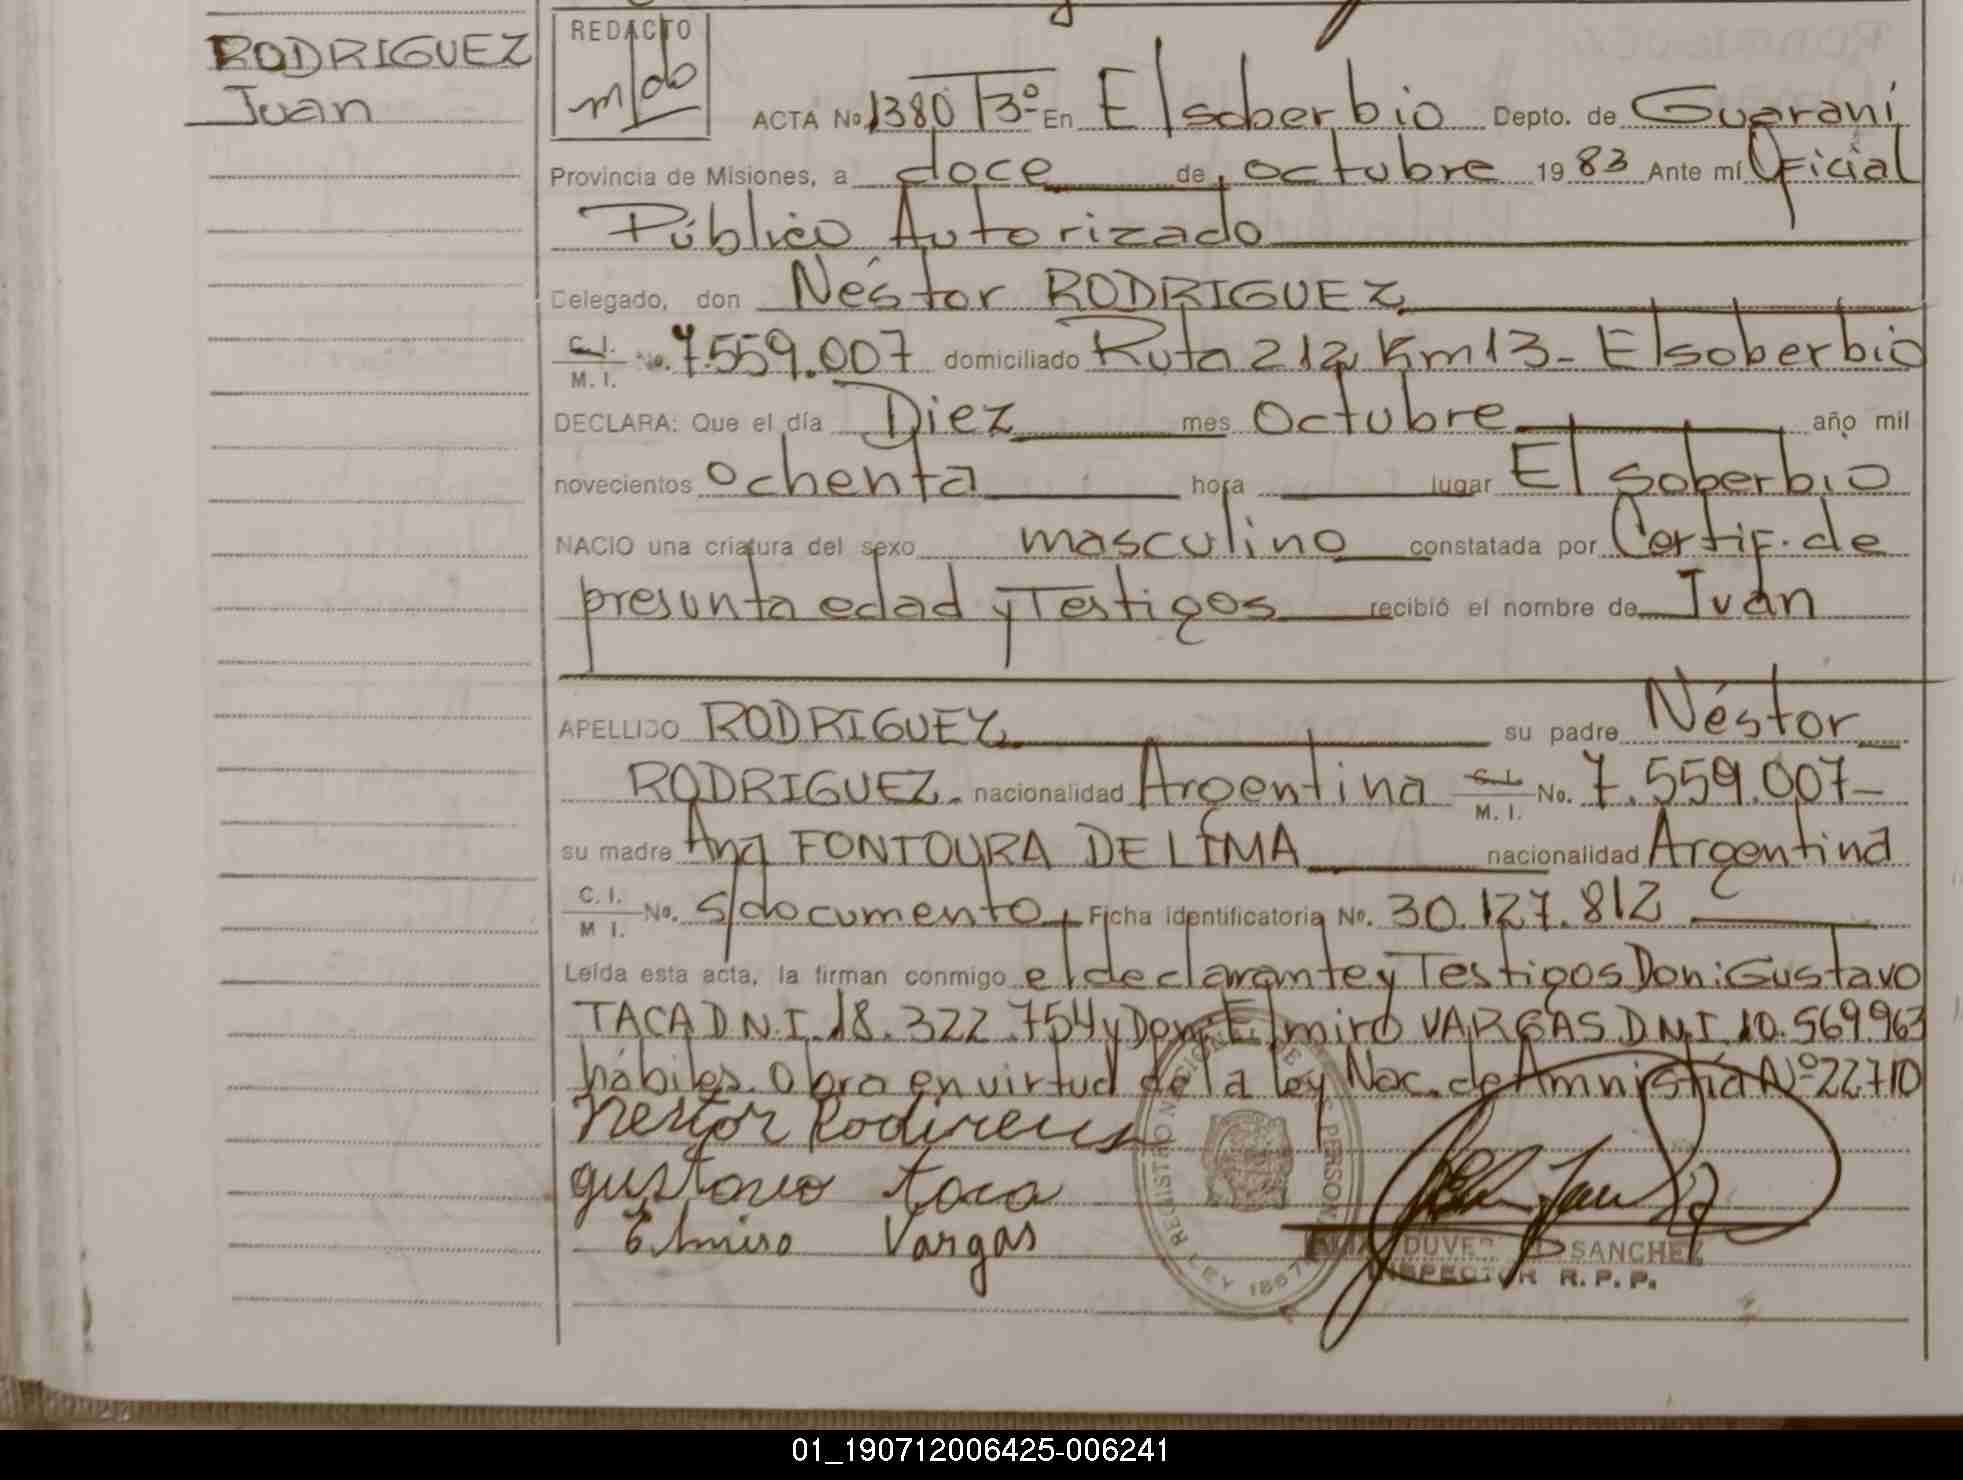 RODRIGUEZ
Juan
REDACTO
ACTA No 1380 T3º En El soberbio Depto. de Guaraní
Provincia de Misiones, a doce de octubre 1983 Ante mí Oficial
Público Autorizado
Delegado, don Néstor RODRIGUEZ
C. I. M. I. No. 7.559.007 domiciliado Ruta 212 Km 13 - El soberbio
DECLARA: Que el día Diez mes octubre año mil
novecientos ochenta hora lugar El soberbio
NACIO una criatura del sexo masculino constatada por Certif. de
presunta edad y Testigos recibió el nombre de Juan
APELLIDO RODRIGUEZ su padre Néstor
RODRIGUEZ. nacionalidad Argentina C. I. M. I. No. 7.559.007-
su madre Ana FONTOURA DE LIMA nacionalidad Argentina
C. I. M I. No. s/documento Ficha identificatoria No. 30.127.812
Leída esta acta, la firman conmigo el declarante y Testigos Don: Gustavo
TACA D.N.I. 18.322.754 y Don: Elmiro VARGAS D.N.I. 10.569.963
hábiles. Obra en virtud de la ley Nac. de Amnistía Nº 22710
gustavo taca
Elmiro Vargas
REGISTRO NACIONAL DE LAS PERSONAS
LEY 1867
DUVER SANCHEZ
INSPECTOR R. P. P.
01_190712006425-006241